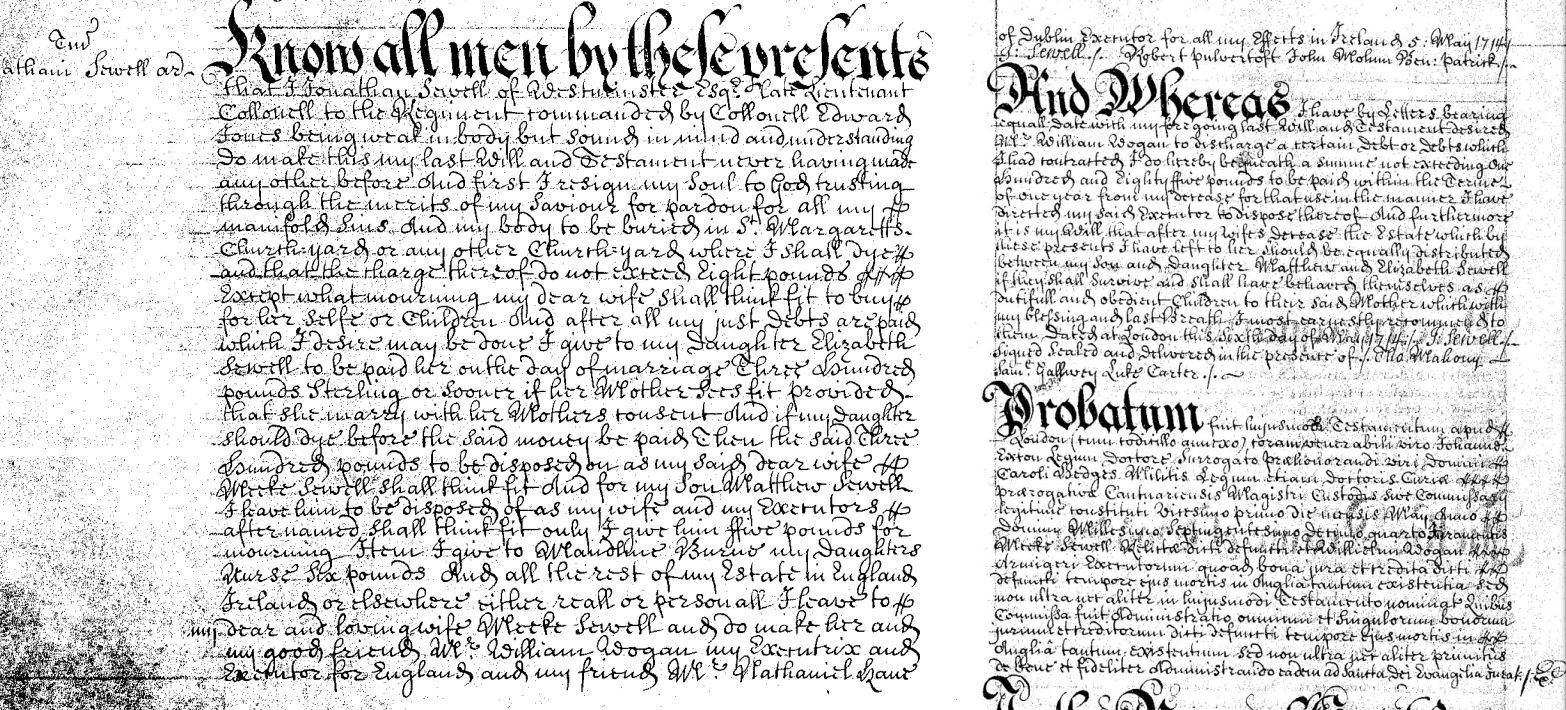 Tm̃
athani Sewell ar-
Know all men by these presents
that I Jonathan Sewell of Westminster Esqr. late Lieutenant
Collonell to the Regiment commanded by Collonell Edward
Jones being weak in body but sound in mind and understanding
do make this my last Will and Testament never having made
any other before And first I resign my Soul to God trusting
through the merits of my Saviour for pardon for all my
manifold Sins. And my body to be buried in St. Margaretts-
Church-yard or any other Church-yard where I shall dye
and that the charge thereof do not exceed Eight pounds
Except what mourning my dear wife shall think fit to buy
for her selfe or Children And after all my just debts are paid
which I desire may be done I give to my Daughter Elizabeth
Sewell to be paid her on the day of marriage Three Hundred
pounds Sterling or sooner if her Mother sees fit provided
that she marry with her Mothers consent And if my Daughter
should dye before the said money be paid Then the said Three
Hundred pounds to be disposed on as my said dear wife
Meeke Sewell shall think fit And for my Son Matthew Sewell
I leave him to be disposed of as my wife and my Executors
after named shall think fit only I give him ffive pounds for
mourning Item I give to Burne my Daughters
Nurse Six pounds And all the rest of my Estate in England
Ireland or elsewhere either reall or personall I leave to
my dear and loving wife Meeke Sewell and do make her and
my good friend Mr. William Wogan my Executrix and
Executor for England and my friend Mr. Nathaniel Kane
of Dublin Executor for all my Effects in Ireland 5: May 1714
J: Sewell./. Robert Pulvertoft John Molum Ben: Patrick./.
And Whereas I have by Letters bearing
equall date with my foregoing last Will and Testament desired
Mr. William Wogan to discharge a certain debt or debts which
I had contracted I do hereby bequeath a summe not exceeding One
Hundred and Eighty ffive pounds to be paid within the Terme
of one year from my decease for that use in the manner I have
directed my said Executor to dispose thereof And furthermore
it is my Will that after my wifes decease the Estate which by
these presents I have left to her should be equally distributed
between my Son and Daughter Matthew and Elizabeth Sewell
if they shall survive and shall have behaved themselves as
dutifull and obedient Children to their said Mother which with
my blessing and last Breath I most earnestly recommend to
them Dated at London this Sixth day of May 1714./. J: Sewell./.
Signed Sealed and delivered in the presence of./. Tho. Mahony
Saml. Gallwey Luke Carter./.
Probatum fuit hujusmodi Testamentum apud
London (cum codicillo annexo) coram venerabili viro Johanne
Exton Legum Doctore Surrogato Præhonorandi viri Domini
Caroli Hedges Militis Legum etiam Doctoris Curiæ
prærogativæ Cantuariensis Magistri Custodis sive Commissarij
legitime constituti Vicesimo primo die mensis Maij Anno
Domini Millesimo Septingentesimo Decimo quarto Juramentis
Meeke Sewell Relictæ dicti defuncti et Willielmi Wogan
Armigeri Executorum quoad bona jura et credita dicti
defuncti tempore ejus mortis in Anglia tantum existentia sed
non ultra nec aliter in hujusmodi Testamento nominat Quibus
Commissa fuit Administratio omnium et singulorum bonorum
jurium et creditorum dicti defuncti tempore Ejus mortis in
Anglia tantum existentium sed non ultra nec aliter primitus
de bene et fideliter Administrando eadem ad Sancta Dei Evangelia Jurat./.